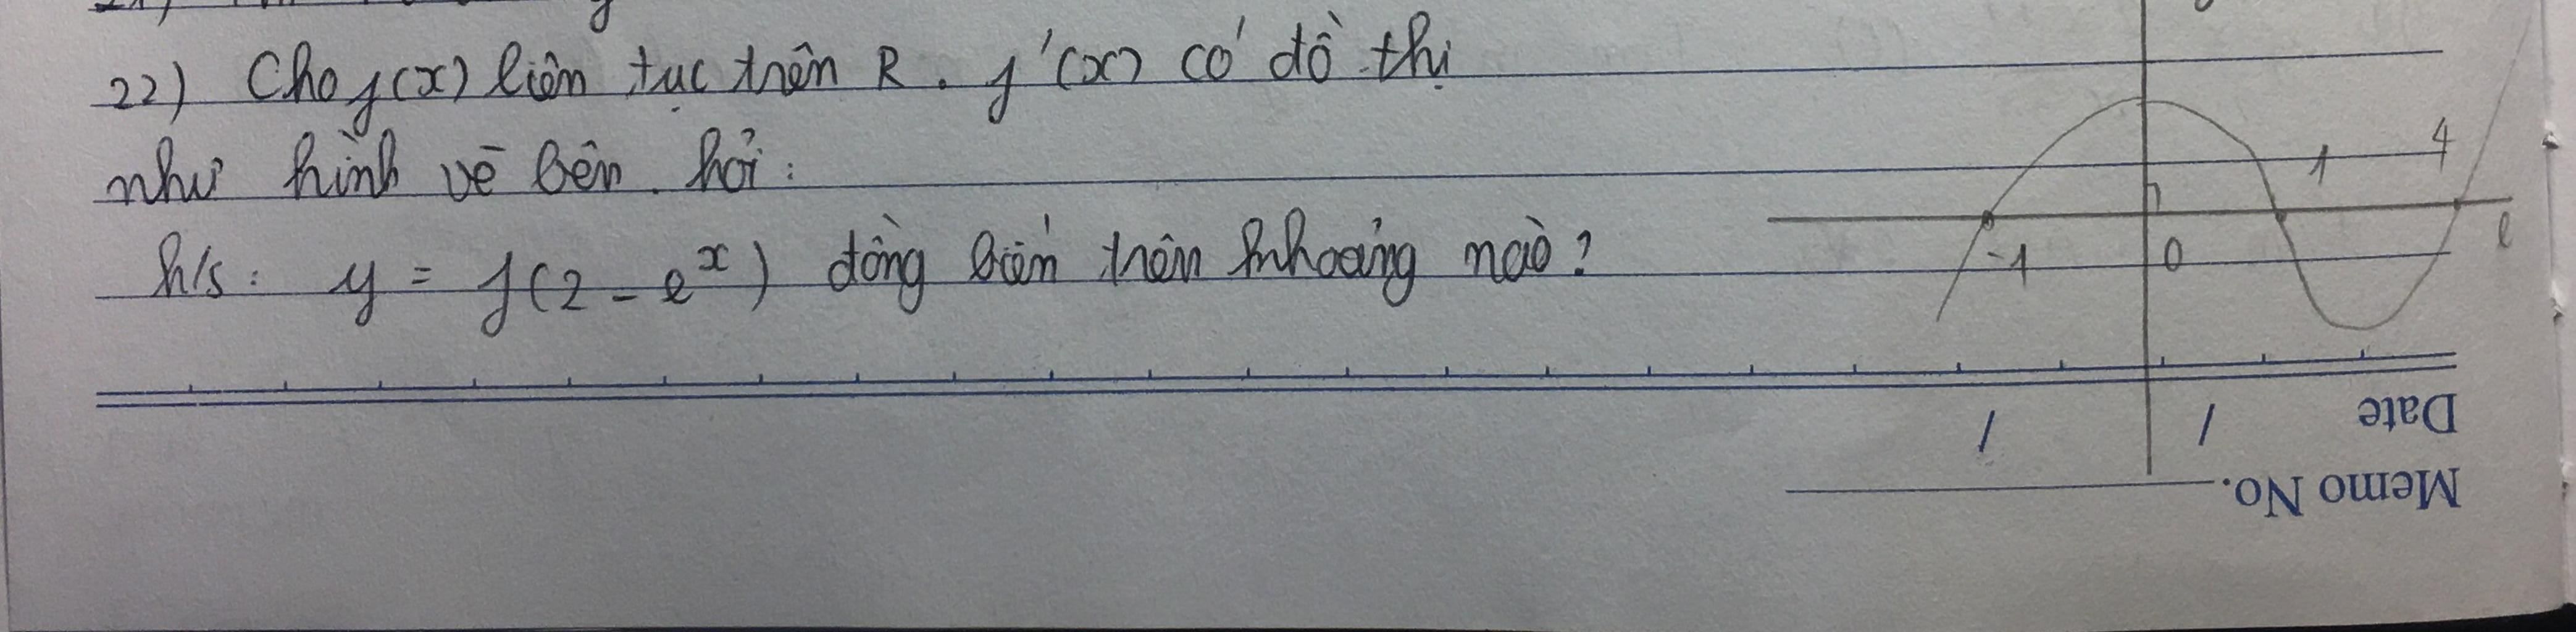 22) Cho f(x) liên tục trên R. f'(x) có đồ thị
như hình vẽ bên. hỏi:
h/s: y = f(2 - e^x) đồng biến trên khoảng nào?
-1 0 1 4
Date / /
Memo No.